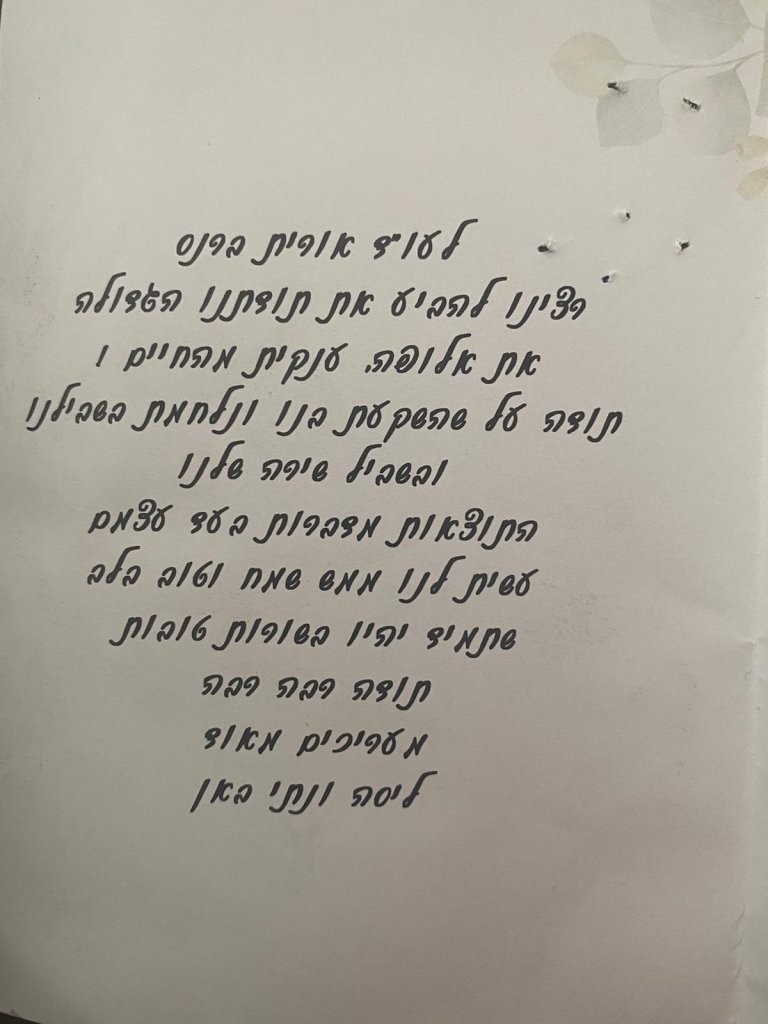 לעו"ד אורית ברנס
רצינו להביע את תודתנו הגדולה
את אלופה. ענקית מהחיים !
תודה על שהשקעת בנו ונלחמת בשבילנו
ובשביל שירה שלנו
התוצאות מדברות בעד עצמם
עשית לנו ממש שמח וטוב בלב
שתמיד יהיו בשורות טובות
תודה רבה רבה
מעריכים מאוד
ליסה ונתי באן